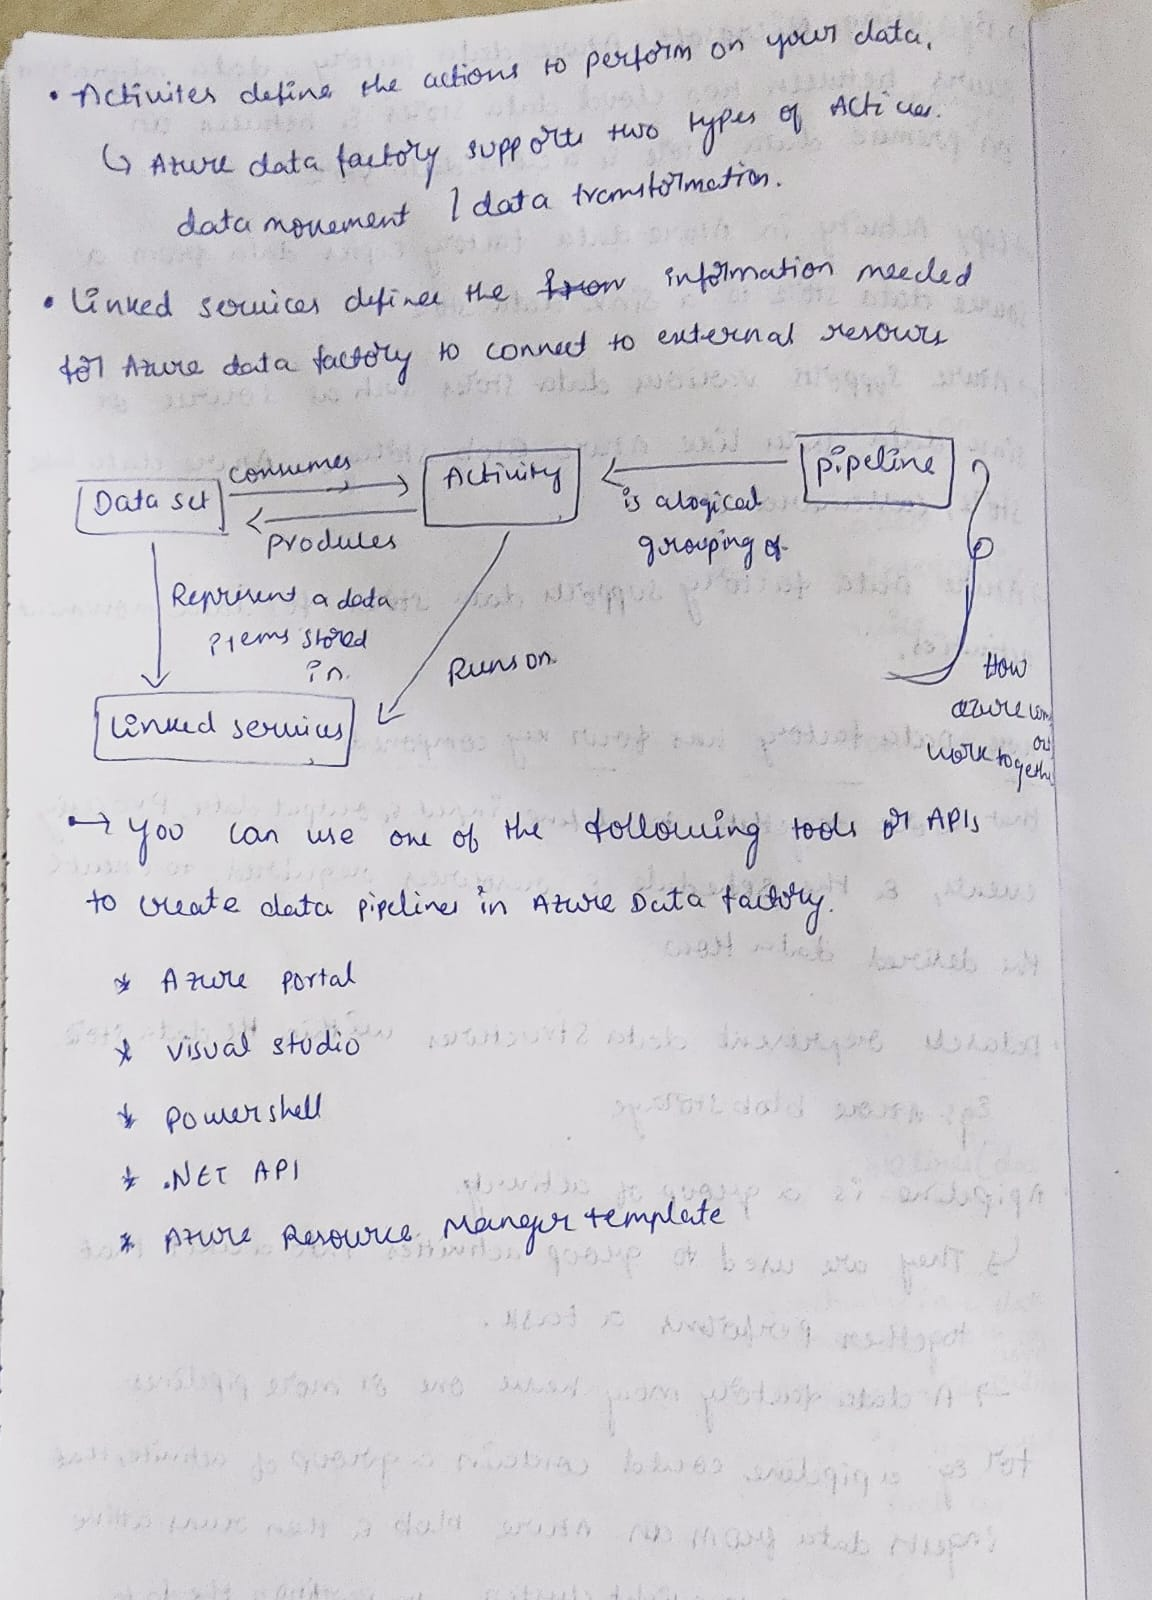 • Activites define the actions to perform on your data.
↳ Azure data factory supports two types of
data movement / data transformation.
• Linked services defines the information needed
for Azure data factory to connect to external
Data set
consumes
produces
Activity
is a logical
grouping of
pipeline
Represent a data
items stored
in.
Runs on
Linked services
How
azure
work together
→ you can use one of the following tools or APIs
to create data pipelines in Azure Data factory.
* Azure portal
* visual studio
* powershell
* .NET API
* Azure Resource Manager template